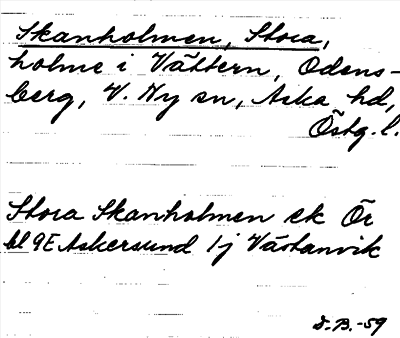 Skanholmen, Stora,
holme i Vättern, Odens-
berg, V. Ny sn, Aska hd,
Östg. l.
Stora Skanholmen ek Ör
bl 9E Askersund 1j Västanvik
D.B.-59